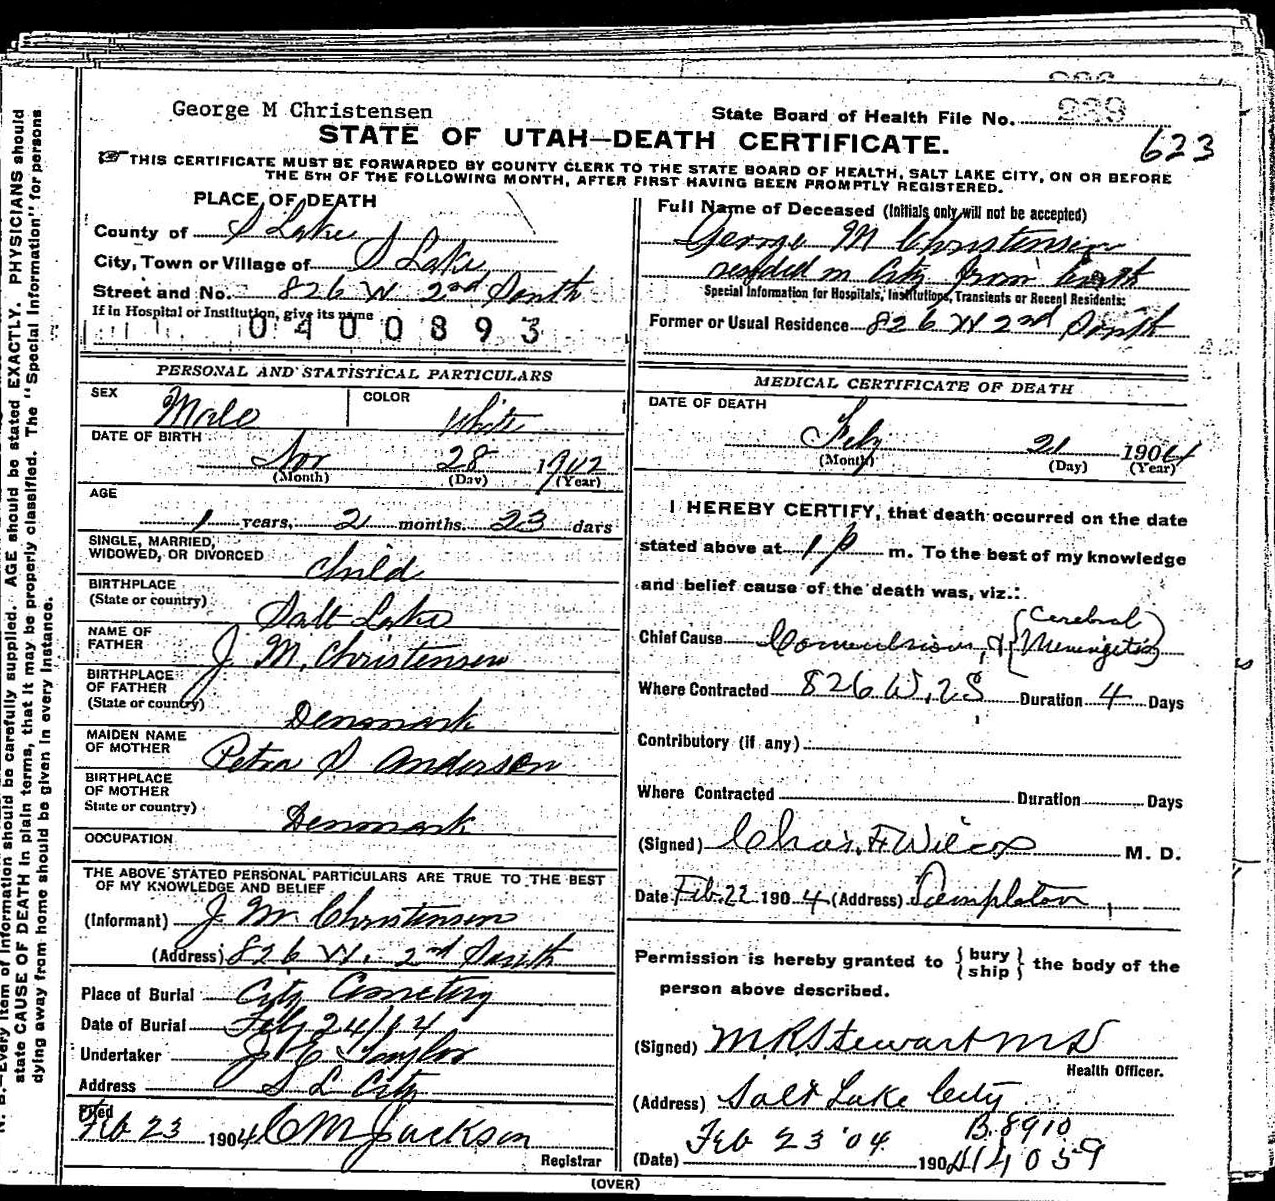 George M Christensen
State Board of Health File No. 239
STATE OF UTAH—DEATH CERTIFICATE.
623
☞ THIS CERTIFICATE MUST BE FORWARDED BY COUNTY CLERK TO THE STATE BOARD OF HEALTH, SALT LAKE CITY, ON OR BEFORE
THE 5TH OF THE FOLLOWING MONTH, AFTER FIRST HAVING BEEN PROMPTLY REGISTERED.
PLACE OF DEATH
County of S Lake
City, Town or Village of S Lake
Street and No. 826 W 2nd South
If in Hospital or Institution, give its name
0400893
Full Name of Deceased (Initials only will not be accepted)
George M Christensen
resided in City from birth
Special Information for Hospitals, Institutions, Transients or Recent Residents:
Former or Usual Residence 826 W 2nd South
PERSONAL AND STATISTICAL PARTICULARS
SEX Male COLOR White
DATE OF BIRTH
Nov 28 1902
(Month) (Day) (Year)
AGE
1 years, 2 months. 23 days
SINGLE, MARRIED,
WIDOWED, OR DIVORCED Child
BIRTHPLACE
(State or country) Salt Lake
NAME OF
FATHER J. M. Christensen
BIRTHPLACE
OF FATHER
(State or country) Denmark
MAIDEN NAME
OF MOTHER Petra S Anderson
BIRTHPLACE
OF MOTHER
State or country) Denmark
OCCUPATION
THE ABOVE STATED PERSONAL PARTICULARS ARE TRUE TO THE BEST
OF MY KNOWLEDGE AND BELIEF
(Informant) J M Christensen
(Address) 826 W. 2nd South
Place of Burial City Cemetery
Date of Burial Feb 24/04
Undertaker Taylor
Address S L City
Filed
Feb 23 1904 C M Jackson
Registrar
MEDICAL CERTIFICATE OF DEATH
DATE OF DEATH
Feby 21 1904
(Month) (Day) (Year)
I HEREBY CERTIFY, that death occurred on the date
stated above at 1 p m. To the best of my knowledge
and belief cause of the death was, viz.:
Chief Cause Convulsions, & {Cerebral Meningitis}
Where Contracted 826 W. 2 S Duration 4 Days
Contributory (if any)
Where Contracted Duration Days
(Signed) Chas. F Wilcox M. D.
Date Feb. 22 1904 (Address) Templeton
Permission is hereby granted to {bury ship} the body of the
person above described.
(Signed) M R Stewart M D
Health Officer.
(Address) Salt Lake City
B. 8910
Feb 23 '04
(Date) 190 14059
(OVER)
N. B.—Every item of information should be carefully supplied. AGE should be stated EXACTLY. PHYSICIANS should
state CAUSE OF DEATH in plain terms, that it may be properly classified. The "Special Information" for persons
dying away from home should be given in every instance.